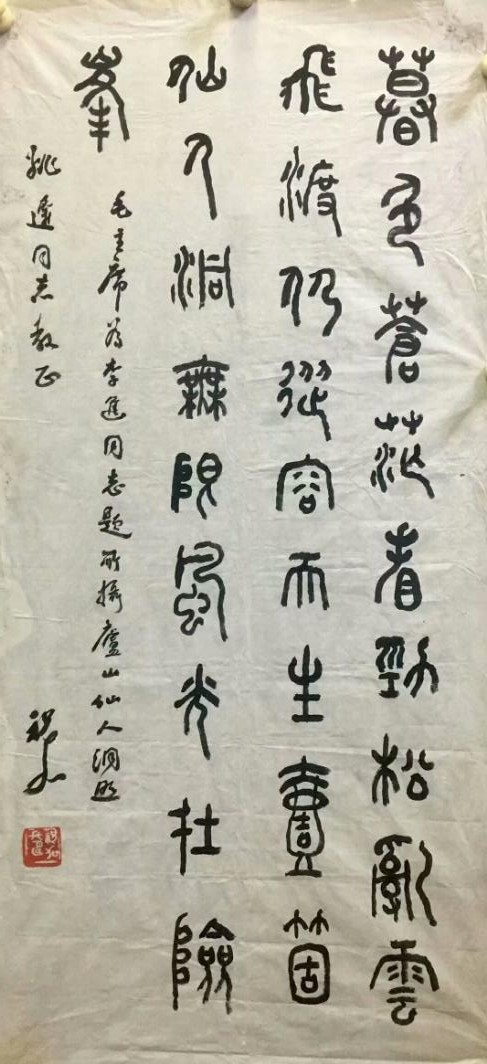 暮色蒼茫看勁松亂雲
飛渡仍從容天生壹箇
仙人洞無限風光在險
峯
毛主席为李進同志题所攝廬山仙人洞照
姚同志教正
祝嘉